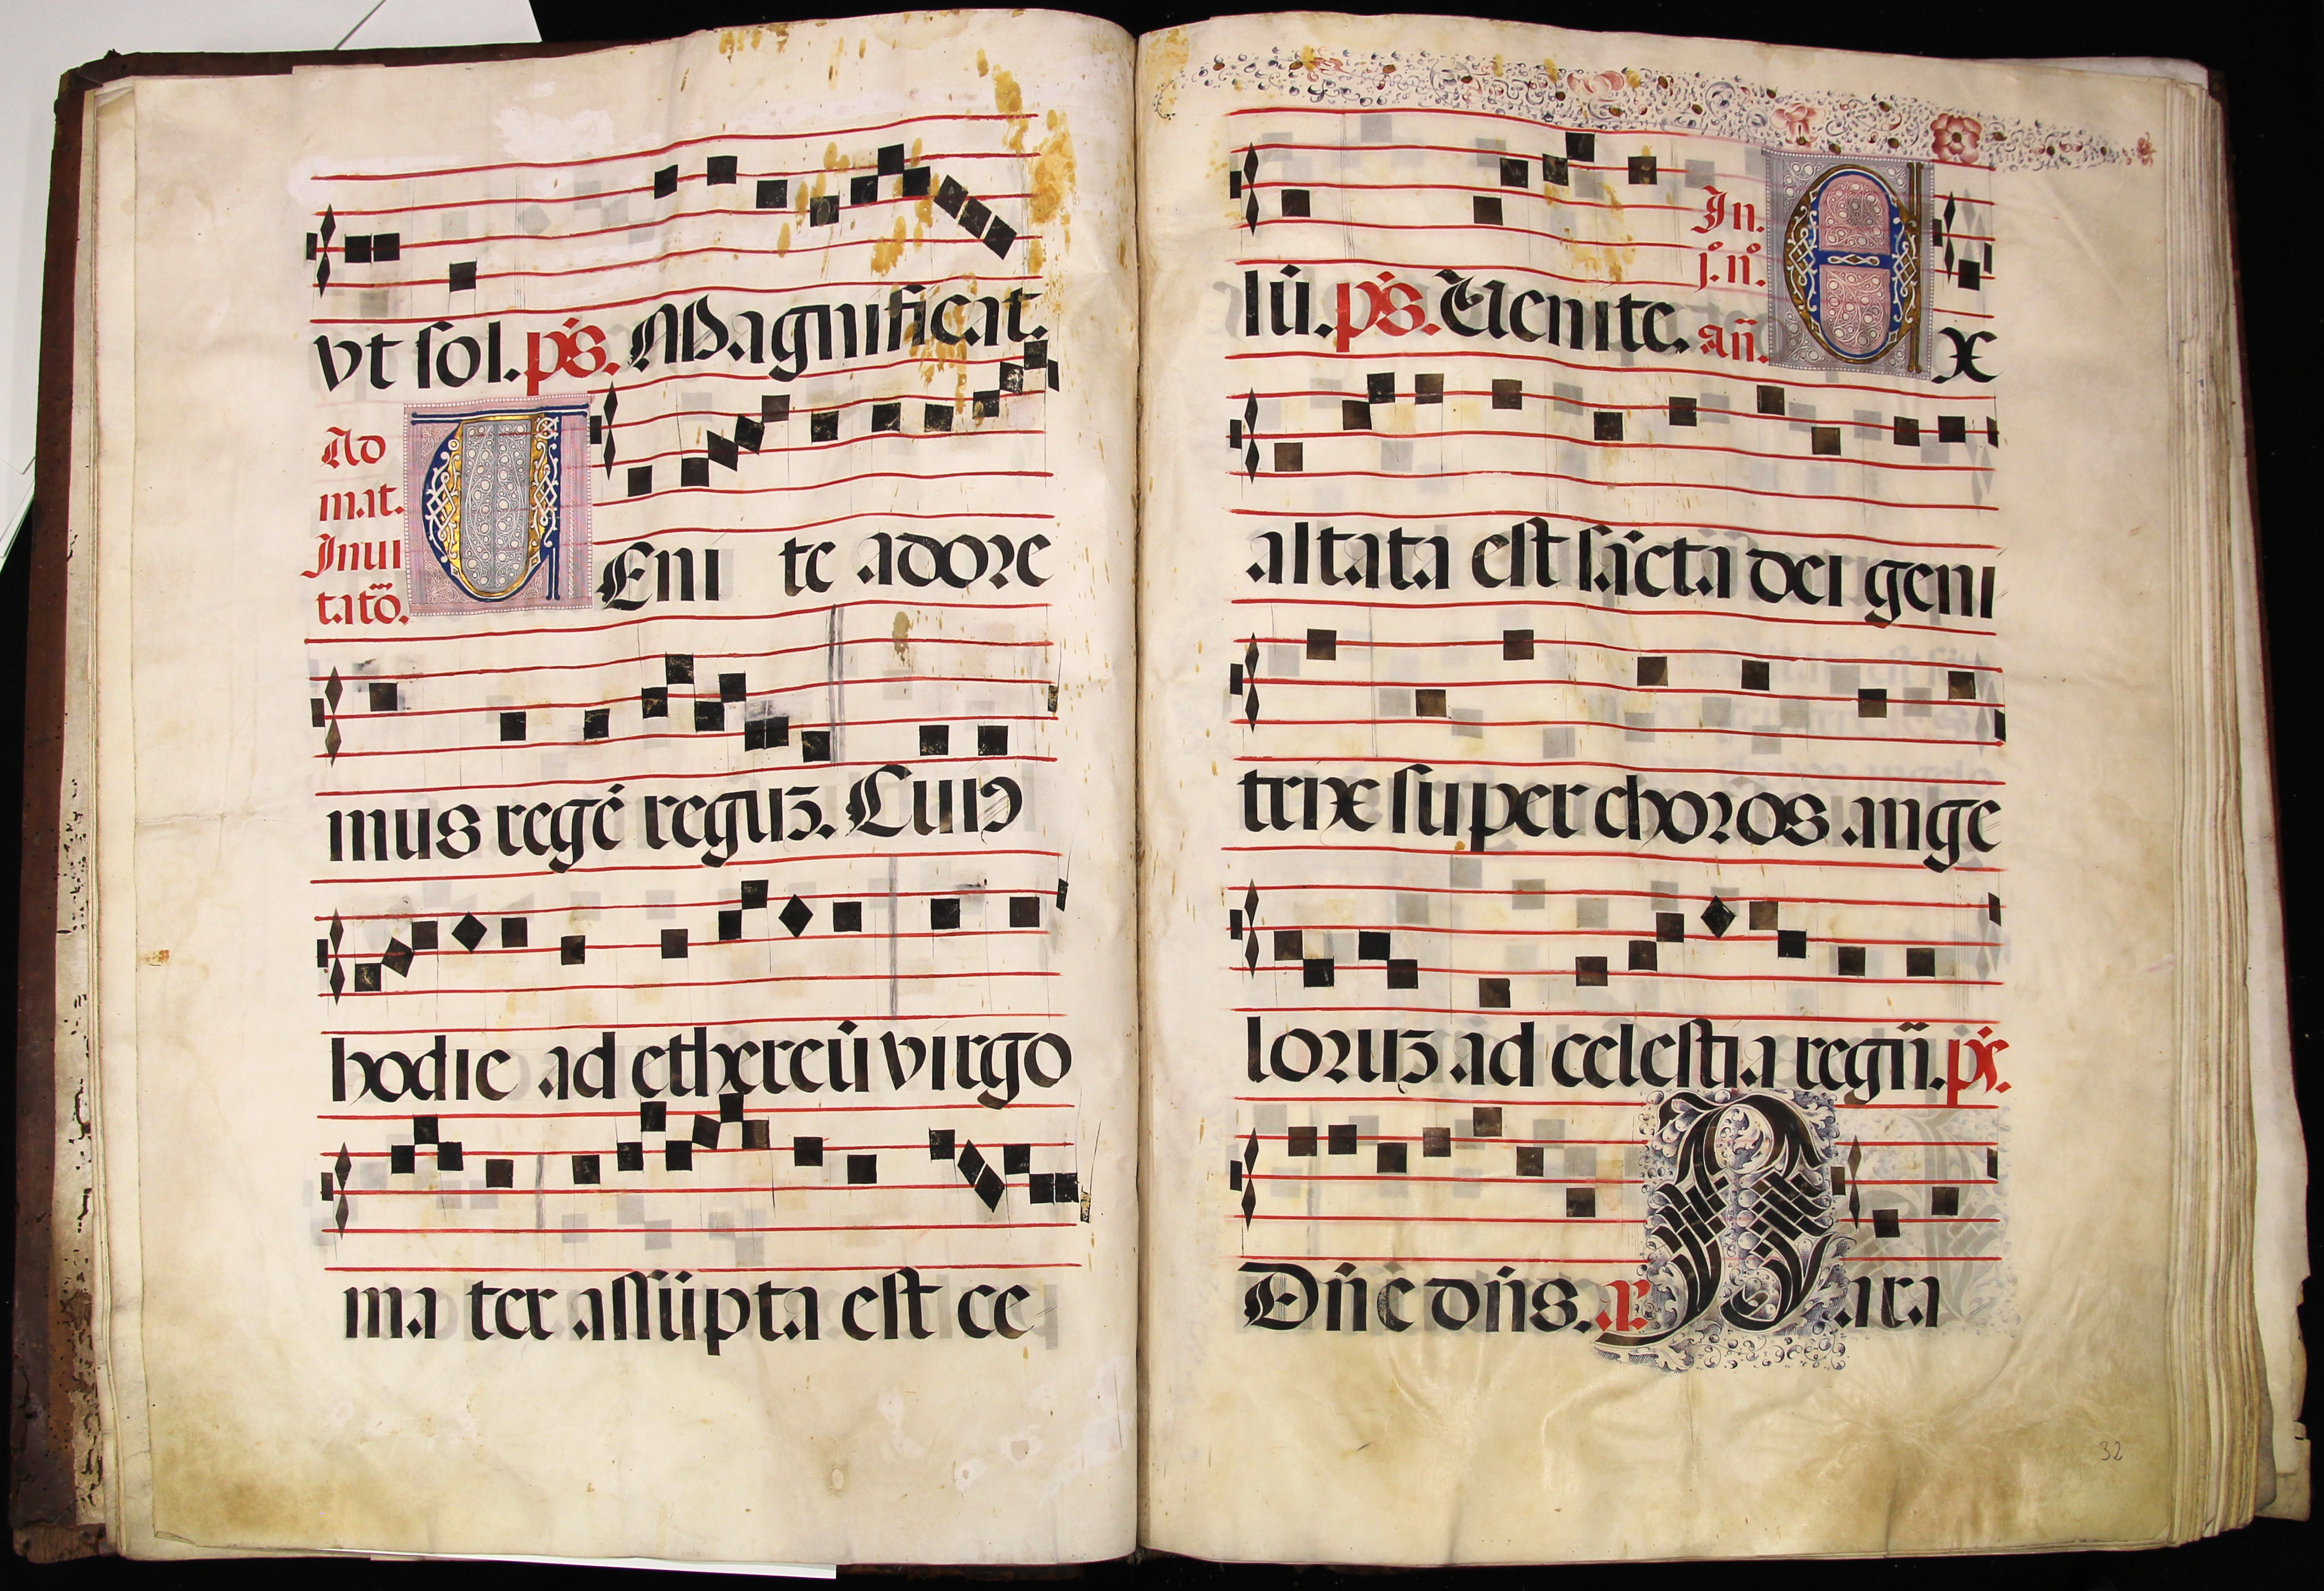 vt sol. ps. Magnificat.
Ad
mat.
Inui
tatō.
VEni te adore
mus regē reguꝫ. Cuiꝰ
hodie ad ethereū virgo
ma ter assūpta est ce
lū. ps. Uenite.
In.
j. nº
añ.
Ex
altata est sācta dei geni
trix super choros ange
loruꝫ ad celestia regñ. ps.
Dñe dñs. a. Para
32